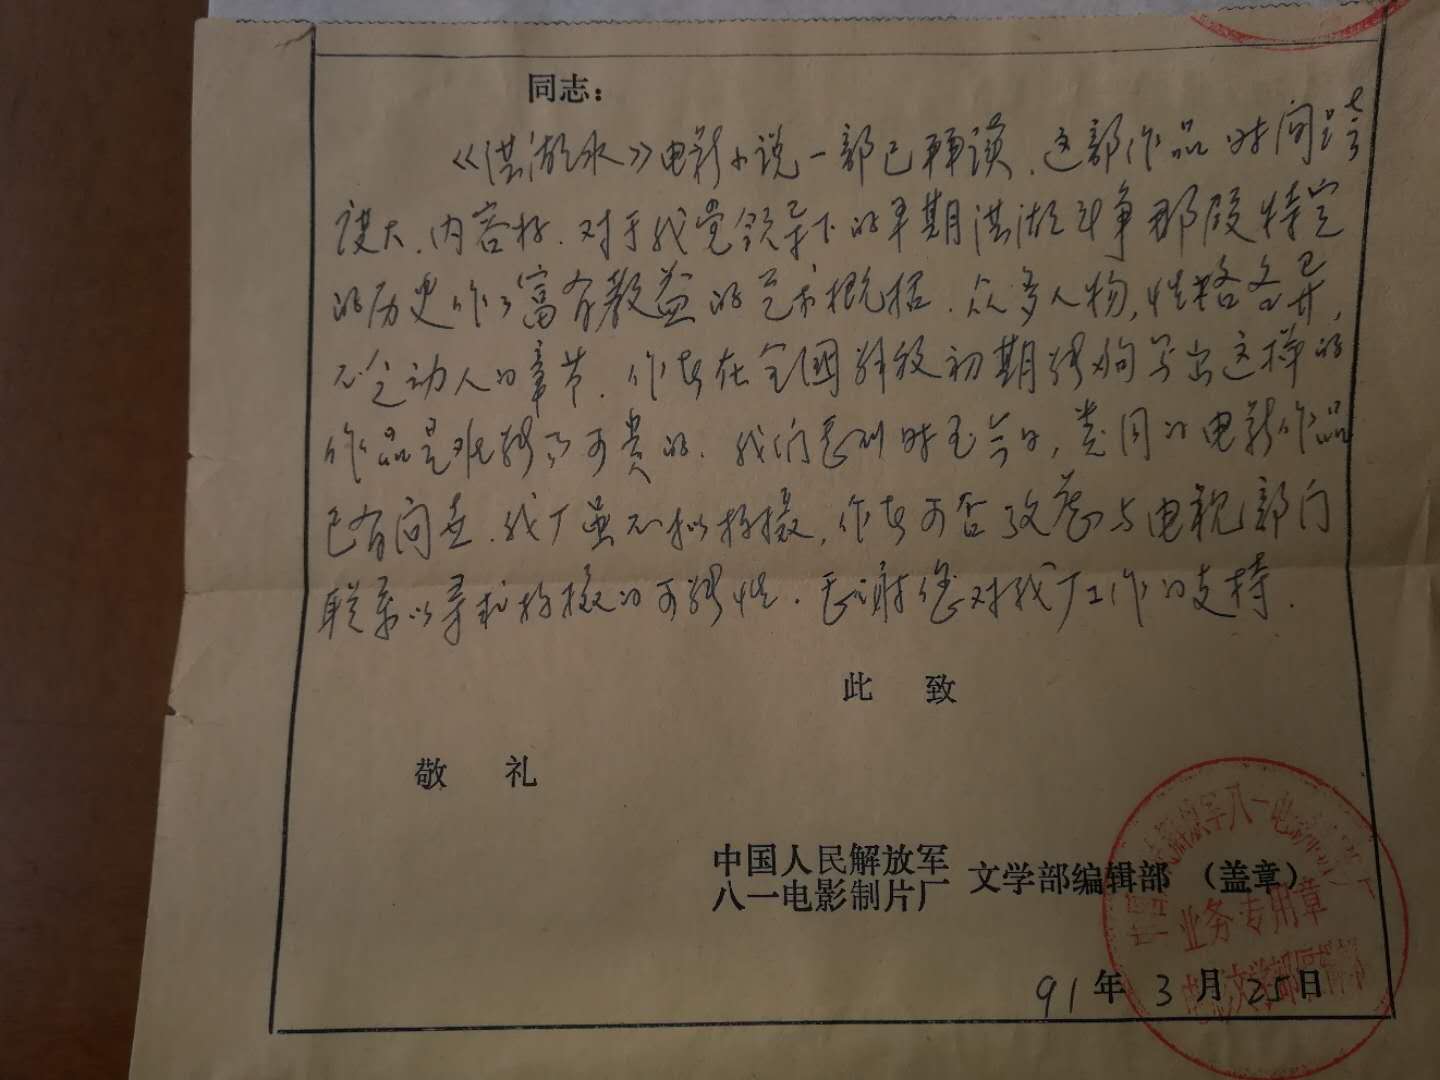 同志：
《洪湖水》电影小说一部已拜读．这部作品时间跨
度大．内容好．对于我党领导下的早期洪湖斗争那段特定
的历史作了富有教益的艺术概括．众多人物，性格各异，
不乏动人的章节．作者在全國解放初期能够写出这样的
作品是难能可贵的．我们感到时至今日，类同的电影作品
已有问世．我厂虽不拟拍摄，作者可否改为与电视部门
联系以寻求拍摄的可能性．感谢您对我厂工作的支持．
此 致
敬 礼
中国人民解放军
八一电影制片厂 文学部编辑部 （盖章）
业务专用章
91年3月25日